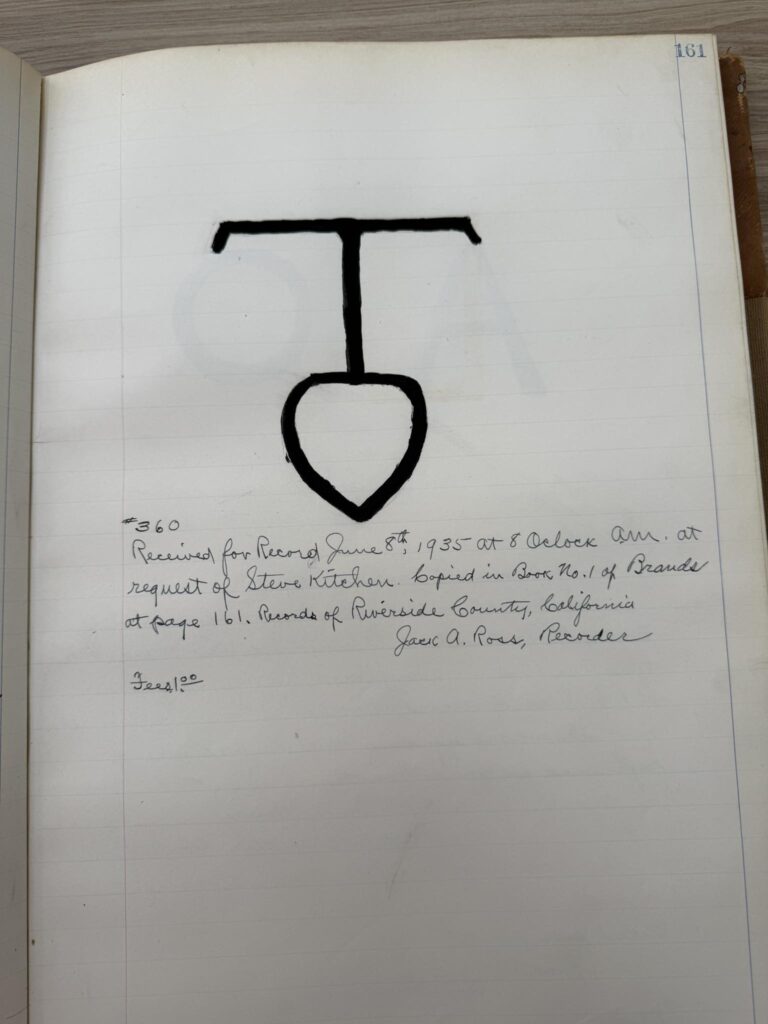 161
#360
Received for Record June 8th, 1935 at 8 Oclock a.m. at
request of Steve Kitchen. Copied in Book No. 1 of Brands
at page 161. Records of Riverside County, California
Jack A. Ross, Recorder
Fees 1.00